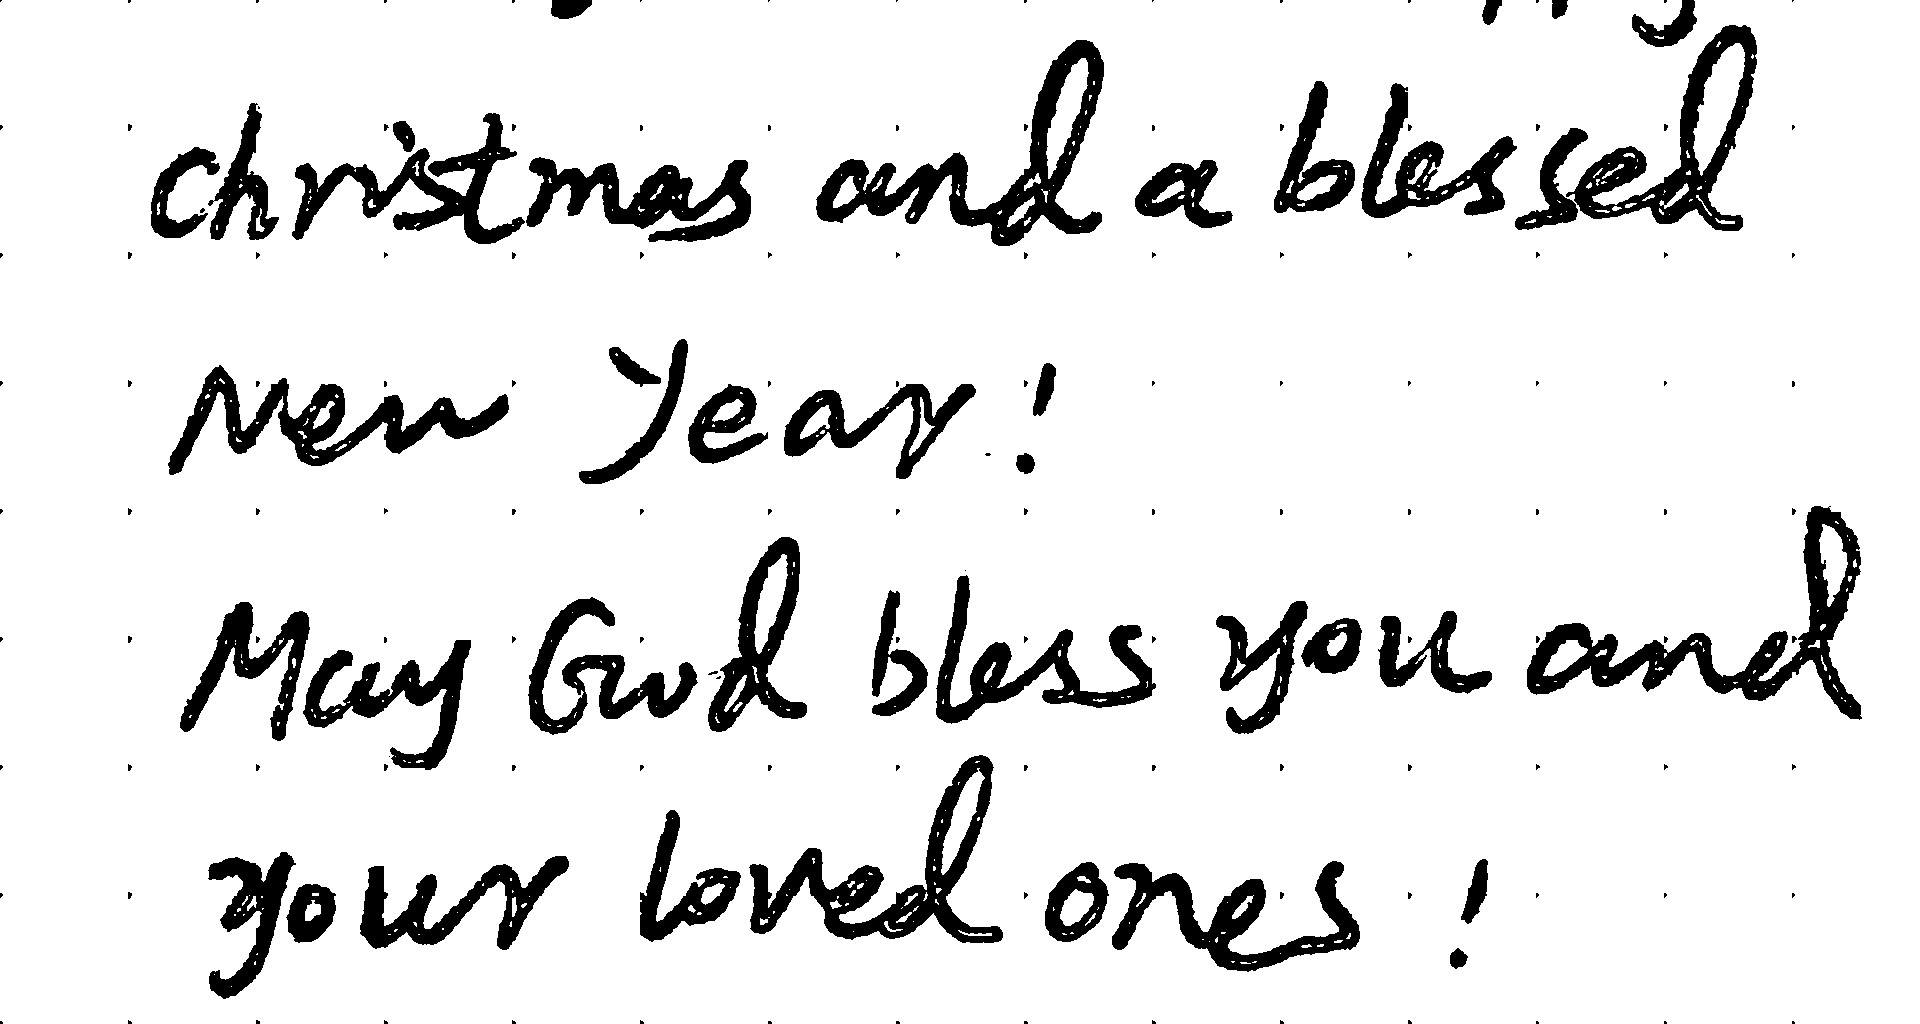 christmas and a blessed
New Year!
May God bless you and
your loved ones!